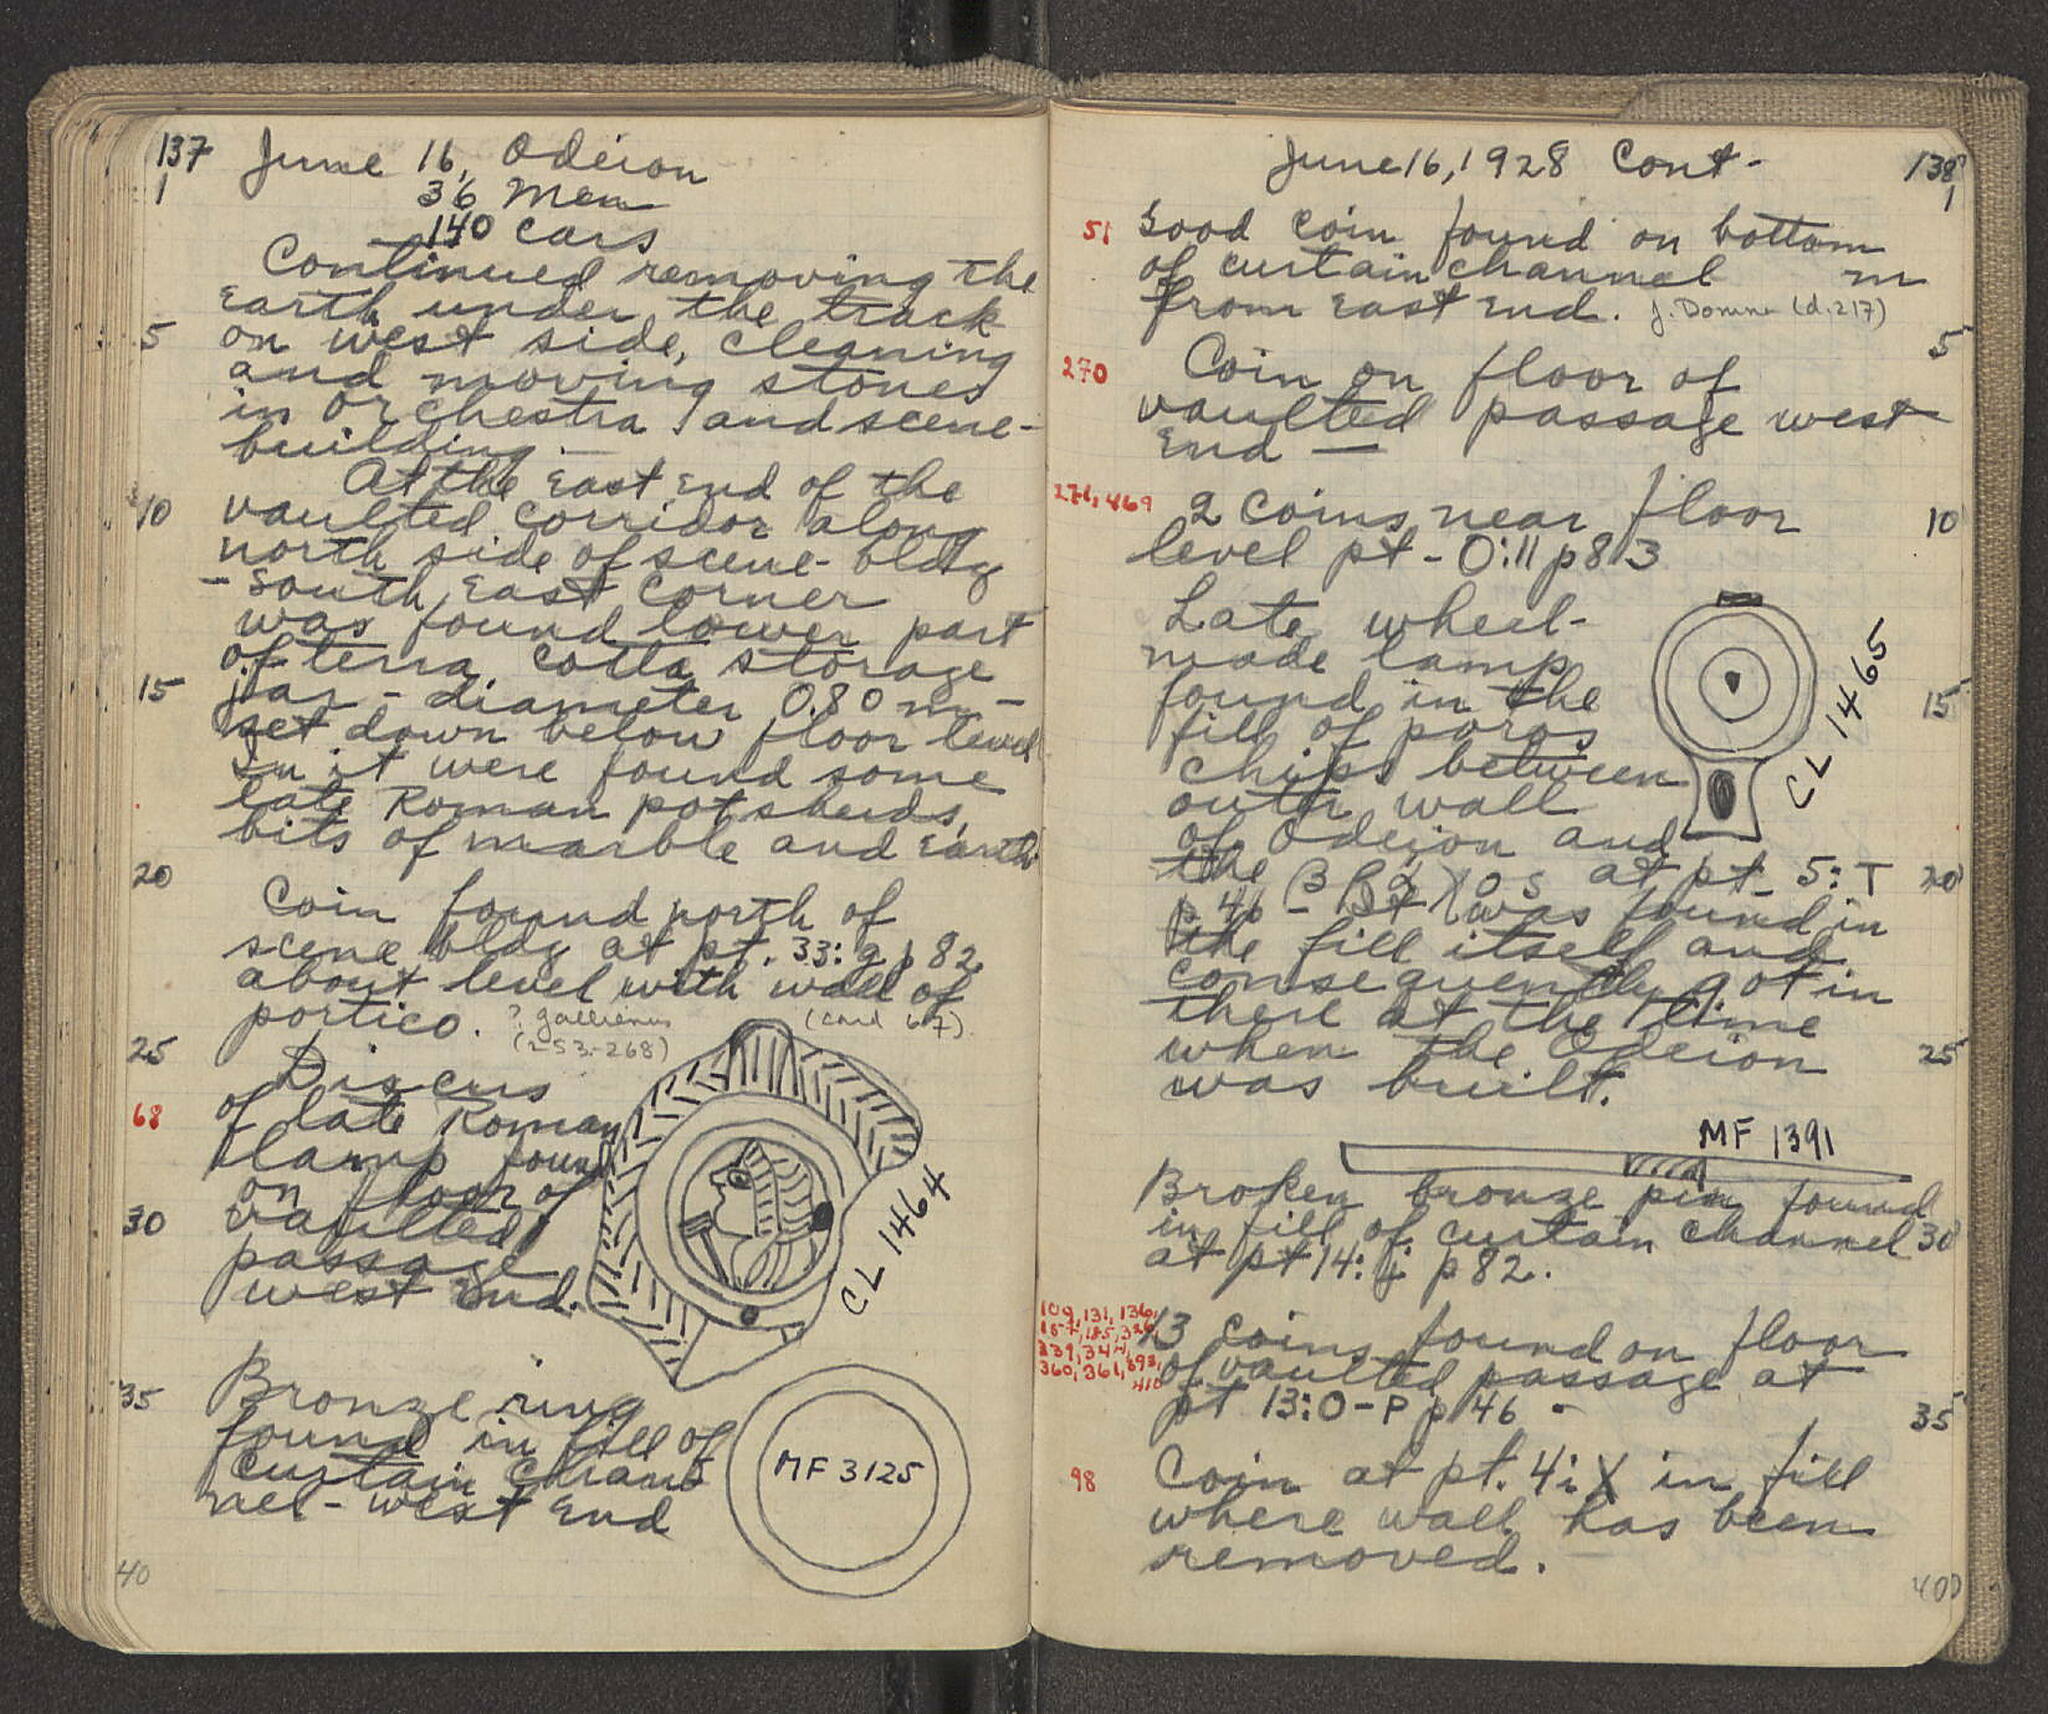 137 June 16, Odeion
1 36 Men
140 cars
Continued removing the
earth under the track
5 on west side, cleaning
and moving stones
in orchestra and scene-
building.
At the East End of the
10 vaulted corridor along
north side of scene- bldg
- South East corner
was found lower part
of terra cotta storage
15 jar - diameter 0.80 m -
set down below floor level
In it were found some
late Roman potsherds,
bits of marble and earth
20
Coin found north of
scene bldg at pt. 33:g p 82
about level with wall of
portico. ? gallienus (coud 67)
(253-268)
25 Discus
68 of late Roman
lamp found
on floor of
30 vaulted
passage
west End.
CL 1464
35 Bronze ring
found in fill of
curtain chan-
nel - west End
MF 3125
40
June 16, 1928 Cont- 138
1
51 Good coin found on bottom
of curtain channel m
from East End. J. Domna (d.217)
5
270 Coin on floor of
vaulted passage west
End —
271, 469 2 coins near floor 10
level pt - O:11 p 83
Late wheel-
made lamp
found in the 15
fill of poros
chips between
outer wall
of Odeion and
CL 1465
the βράχος at pt- 5:T 20
p 46 - It was found in
the fill itself and
consequently got in
there at the time
when the Odeion 25
was built.
MF 1391
Broken bronze pin found
in fill of curtain channel 30
at pt 14: j p 82.
109, 131, 136,
157, 185, 326,
339, 344,
360, 361, 393,
410
13 coins found on floor
of vaulted passage at
pt 13:O-P p 46 -
35
98 Coin at pt. 4:X in fill
where wall has been
removed.
40